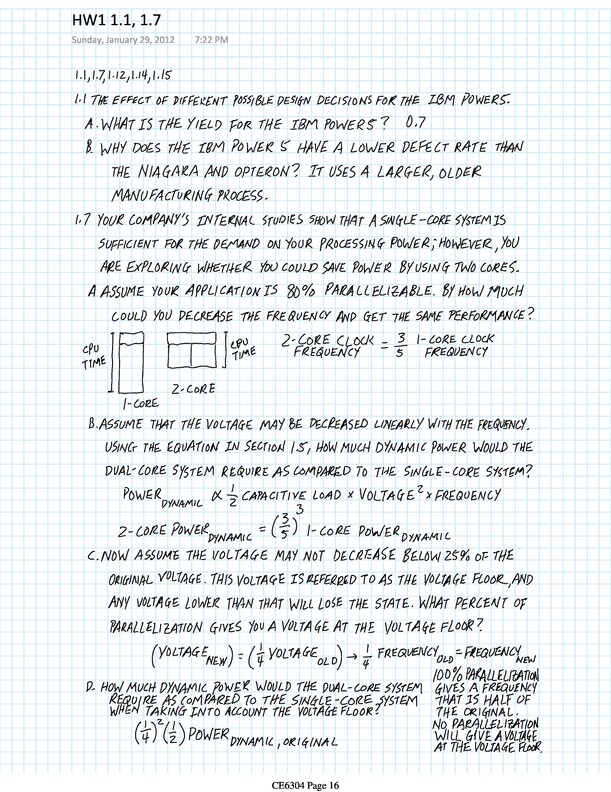 HW1 1.1, 1.7
Sunday, January 29, 2012 7:22 PM
1.1, 1.7, 1.12, 1.14, 1.15
1.1 THE EFFECT OF DIFFERENT POSSIBLE DESIGN DECISIONS FOR THE IBM POWER5.
A. WHAT IS THE YIELD FOR THE IBM POWER5? 0.7
B. WHY DOES THE IBM POWER 5 HAVE A LOWER DEFECT RATE THAN
THE NIAGARA AND OPTERON? IT USES A LARGER, OLDER
MANUFACTURING PROCESS.
1.7 YOUR COMPANY'S INTERNAL STUDIES SHOW THAT A SINGLE-CORE SYSTEM IS
SUFFICIENT FOR THE DEMAND ON YOUR PROCESSING POWER; HOWEVER, YOU
ARE EXPLORING WHETHER YOU COULD SAVE POWER BY USING TWO CORES.
A ASSUME YOUR APPLICATION IS 80% PARALLELIZABLE. BY HOW MUCH
COULD YOU DECREASE THE FREQUENCY AND GET THE SAME PERFORMANCE?
CPU TIME
1-CORE
2-CORE
CPU TIME
2-CORE CLOCK FREQUENCY = 3/5 1-CORE CLOCK FREQUENCY
B. ASSUME THAT THE VOLTAGE MAY BE DECREASED LINEARLY WITH THE FREQUENCY.
USING THE EQUATION IN SECTION 1.5, HOW MUCH DYNAMIC POWER WOULD THE
DUAL-CORE SYSTEM REQUIRE AS COMPARED TO THE SINGLE-CORE SYSTEM?
POWER DYNAMIC ∝ 1/2 CAPACITIVE LOAD × VOLTAGE² × FREQUENCY
2-CORE POWER DYNAMIC = (3/5)³ 1-CORE POWER DYNAMIC
C. NOW ASSUME THE VOLTAGE MAY NOT DECREASE BELOW 25% OF THE
ORIGINAL VOLTAGE. THIS VOLTAGE IS REFERRED TO AS THE VOLTAGE FLOOR, AND
ANY VOLTAGE LOWER THAN THAT WILL LOSE THE STATE. WHAT PERCENT OF
PARALLELIZATION GIVES YOU A VOLTAGE AT THE VOLTAGE FLOOR?
(VOLTAGE NEW) = (1/4 VOLTAGE OLD) → 1/4 FREQUENCY OLD = FREQUENCY NEW
100% PARALLELIZATION
GIVES A FREQUENCY
THAT IS HALF OF
THE ORIGINAL.
NO PARALLELIZATION
WILL GIVE A VOLTAGE
AT THE VOLTAGE FLOOR.
D. HOW MUCH DYNAMIC POWER WOULD THE DUAL-CORE SYSTEM
REQUIRE AS COMPARED TO THE SINGLE-CORE SYSTEM
WHEN TAKING INTO ACCOUNT THE VOLTAGE FLOOR?
(1/4)² (1/2) POWER DYNAMIC, ORIGINAL
CE6304 Page 16